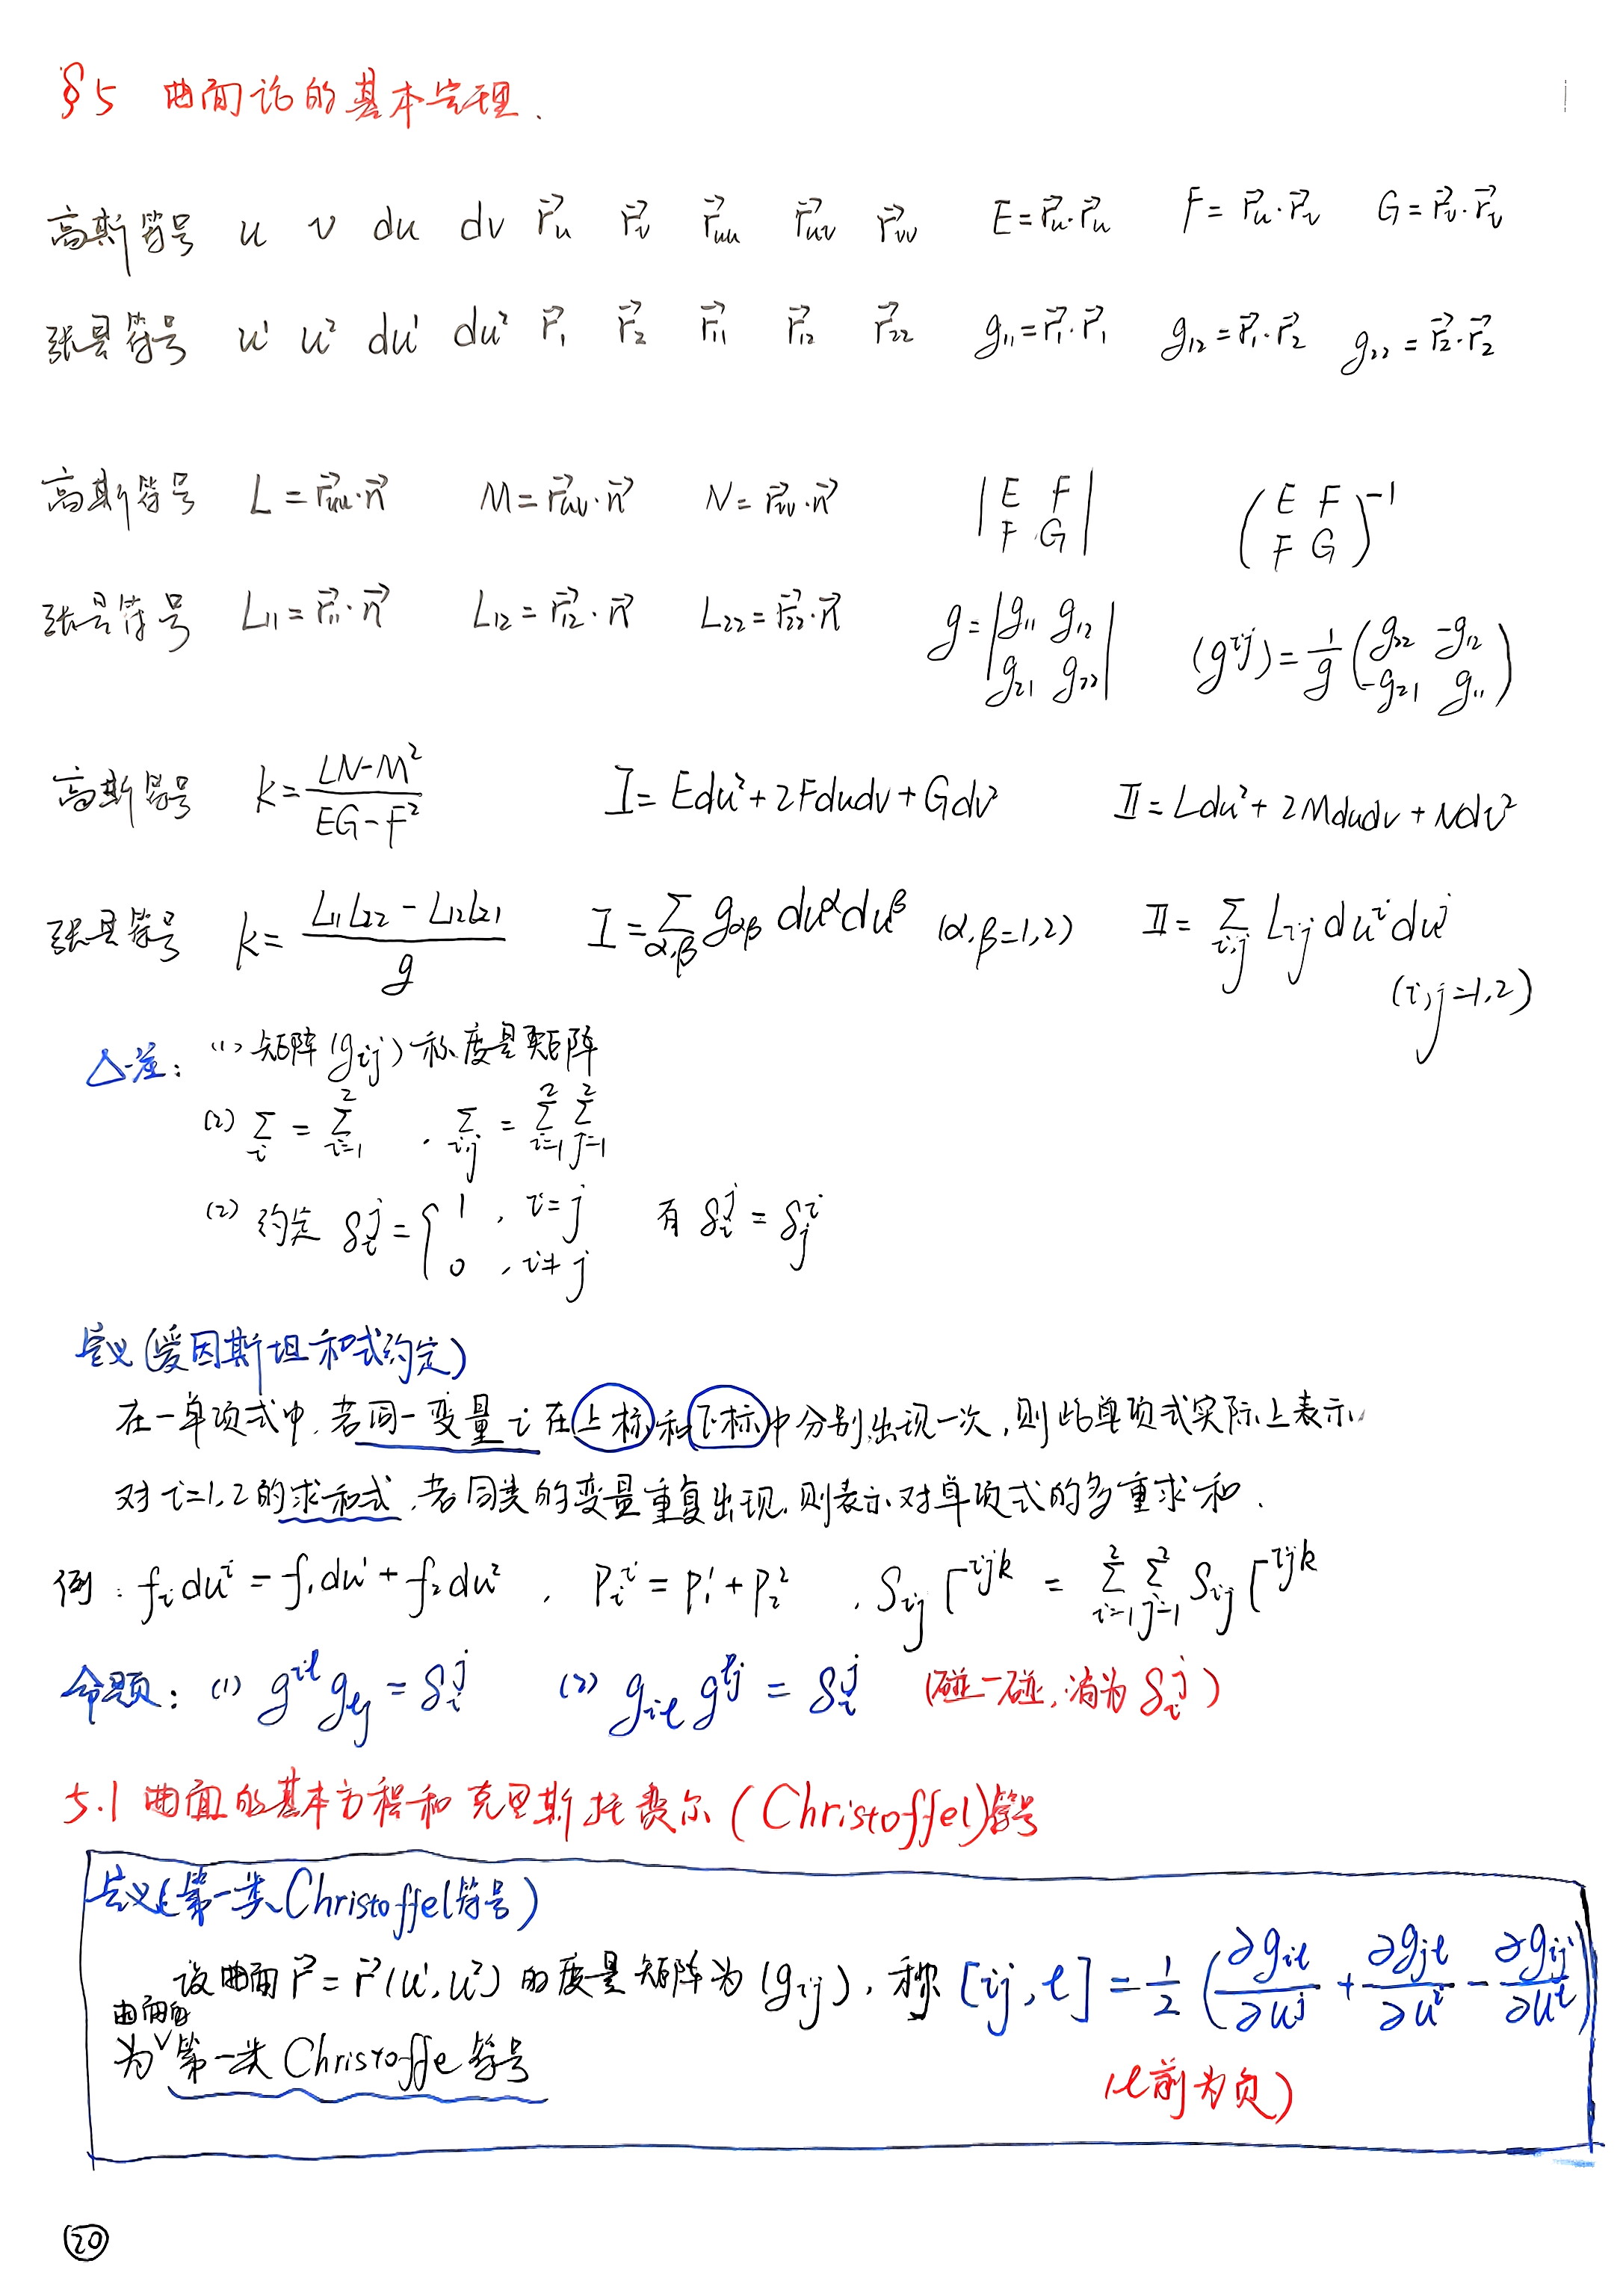 §5 曲面论的基本定理.
高斯符号 u v du dv r⃗_u r⃗_v r⃗_uu r⃗_uv r⃗_vv E=r⃗_u·r⃗_u F=r⃗_u·r⃗_v G=r⃗_v·r⃗_v
张量符号 u¹ u² du¹ du² r⃗₁ r⃗₂ r⃗₁₁ r⃗₁₂ r⃗₂₂ g₁₁=r⃗₁·r⃗₁ g₁₂=r⃗₁·r⃗₂ g₂₂=r⃗₂·r⃗₂
高斯符号 L=r⃗_uu·n⃗ M=r⃗_uv·n⃗ N=r⃗_vv·n⃗ |E F; F G| (E F; F G)⁻¹
张量符号 L₁₁=r⃗₁₁·n⃗ L₁₂=r⃗₁₂·n⃗ L₂₂=r⃗₂₂·n⃗ g=|g₁₁ g₁₂; g₂₁ g₂₂| (g^{ij})=1/g (g₂₂ -g₁₂; -g₂₁ g₁₁)
高斯符号 k=(LN-M²)/(EG-F²) Ⅰ=Edu²+2Fdudv+Gdv² Ⅱ=Ldu²+2Mdudv+Ndv²
张量符号 k=(L₁₁L₂₂-L₁₂L₂₁)/g Ⅰ=∑_{α,β} g_{αβ} du^α du^β (α,β=1,2) Ⅱ=∑_{i,j} L_{ij} du^i du^j
(i,j=1,2)
△注: (1) 矩阵(g_{ij})称度量矩阵
(2) ∑_i = ∑_{i=1}^2 , ∑_{i,j} = ∑_{i=1}^2 ∑_{j=1}^2
(2) 约定 δ_i^j = { 1, i=j; 0, i≠j 有 δ_i^j = δ_j^i
定义(爱因斯坦和式约定)
在一单项式中,若同一变量 i 在上标和下标中分别出现一次,则此单项式实际上表示
对 i=1,2的求和式,若同类的变量重复出现,则表示对单项式的多重求和.
例: f_i du^i = f₁du¹+f₂du² , P_i^i = P₁¹+P₂² , S_{ij} Γ^{ijk} = ∑_{i=1}^2 ∑_{j=1}^2 S_{ij} Γ^{ijk}
命题: (1) g^{il} g_{lj} = δ_i^j (2) g_{il} g^{lj} = δ_i^j (碰一碰,消为 δ_i^j)
5.1 曲面的基本方程和克里斯托费尔(Christoffel)符号
定义(第一类Christoffel符号)
设曲面 r⃗=r⃗(u¹,u²)的度量矩阵为(g_{ij}),称 [ij,l]=1/2 (∂g_{il}/∂u^j + ∂g_{jl}/∂u^i - ∂g_{ij}/∂u^l)
曲面的
为∨第一类 Christoffe 符号
(l前为负)
20